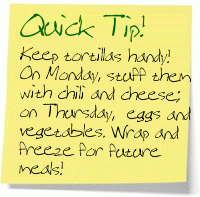 Quick Tip!
Keep tortillas handy!
On Monday, stuff them
with chili and cheese;
on Thursday, eggs and
vegetables. Wrap and
freeze for future
meals!